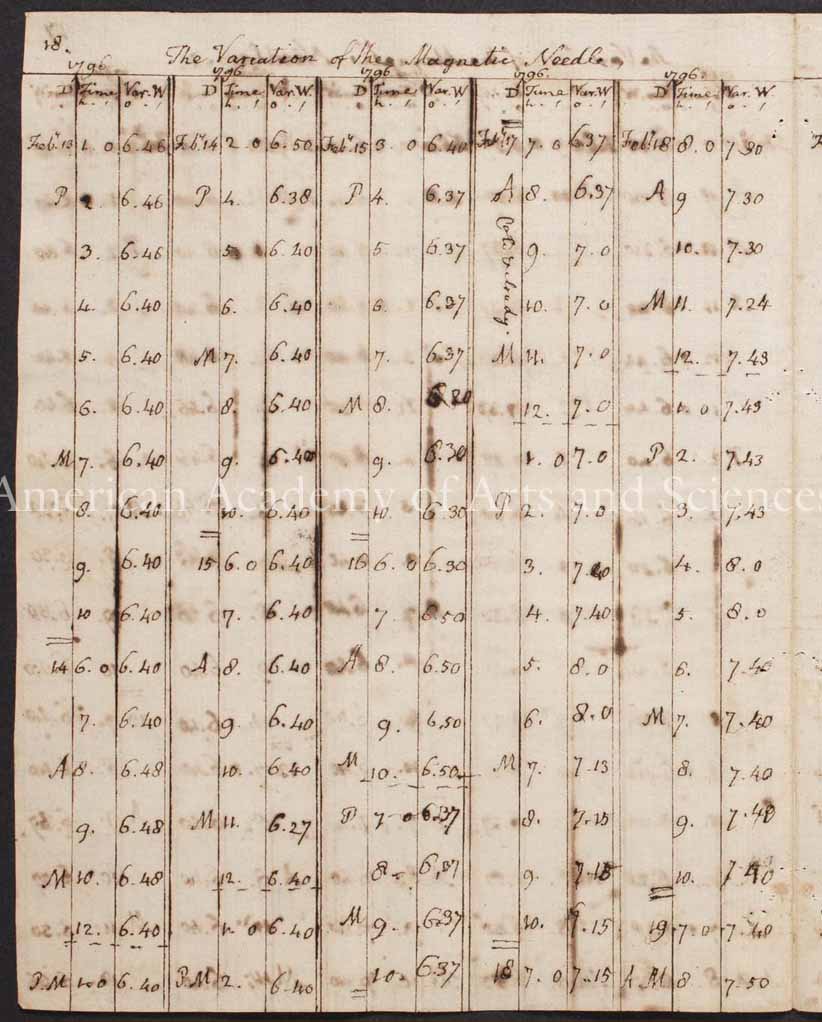 18. The Variation of the Magnetic Needle,
1796 1796 1796 1796. 1796.
D Time Var.W D Time Var.W. D Time Var.W D Time Var.W D Time Var.W.
h. , o. , h. , o. , h. , o. , h. , o. , h. , o. ,
Feb.y 13 1. 0 6.46 Feb.y 14 2 0 6.50 Feb.y 15 3. 0 6.40 Feb.y 17 7. 0 6.37 Feb.y 18 8. 0 7.30
P 2. 6.46 P 4. 6.38 P 4. 6.37 A. 8. 6.37 A 9 7.30
3. 6.46 5. 6.40 5. 6.37 9. 7.0 10. 7.30
4. 6.40 6. 6.40 6. 6.37 cloudy. 10. 7.0 M 11. 7.24
5. 6.40 M 7. 6.40 7. 6.37 M 11. 7.0 12. 7.43
6. 6.40 8. 6.40 M 8. 12. 7.0 1. 0 7.43
M 7. 6.40 9. 6.40 9. 6.30 1. 0 7.0 P 2. 7.43
8. 6.40 10. 6.40 10. 6.30 P 2. 7.0 3. 7.43
9. 6.40 15 6.0 6.40 16 6.0 6.30 3. 4. 8.0
10 6.40 7. 6.40 7. 6.50 4. 7.40 5. 8.0
14 6.0 6.40 A 8. 6.40 A 8. 6.50 5. 8.0 6. 7.40
7. 6.40 9. 6.40 9. 6.50 6. 8.0 M 7. 7.40
A 8. 6.48 10. 6.40 M 10. 6.50 M 7. 7.13 8. 7.40
9. 6.48 M 11. 6.27 P 7 0 6.37 8. 7.15 9. 7.40
M 10. 6.48 12. 6.40 8. 6.37 9. 7.15 10. 7.40
12. 6.40 1. 0 6.40 M 9. 6.37 10. 7.15 19 7.0 7.40
P.M 1.0 6.40 P.M 2. 6.40 10. 6.37 18 7.0 7.15 A M 8 7.50
American Academy of Arts and Sciences